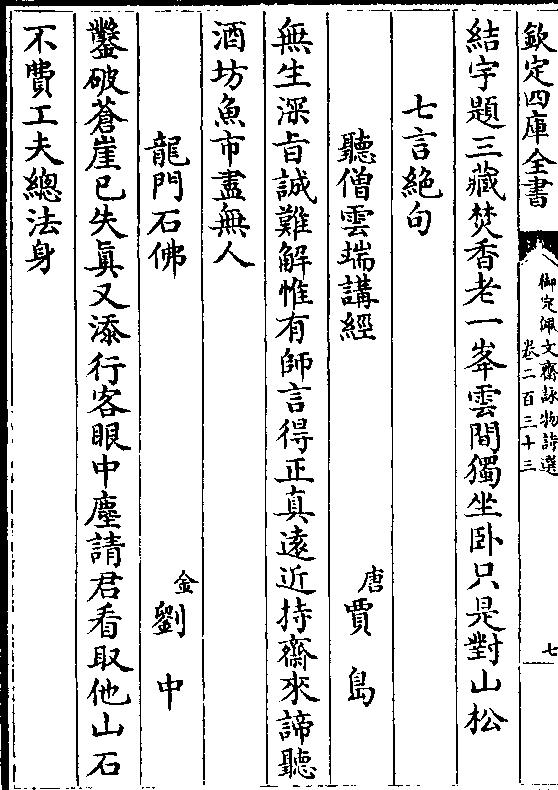 欽定四庫全書
御定佩文齋詠物詩選
卷二百三十三
七
結宇題三藏焚香老一峯雲間獨坐卧只是對山松
七言絶句
聽僧雲端講經
唐
賈島
無生深旨誠難解惟有師言得正真遠近持齋來諦聽
酒坊魚市盡無人
龍門石佛
金
劉中
鑿破蒼崖已失眞又添行客眼中塵請君看取他山石
不費工夫總法身